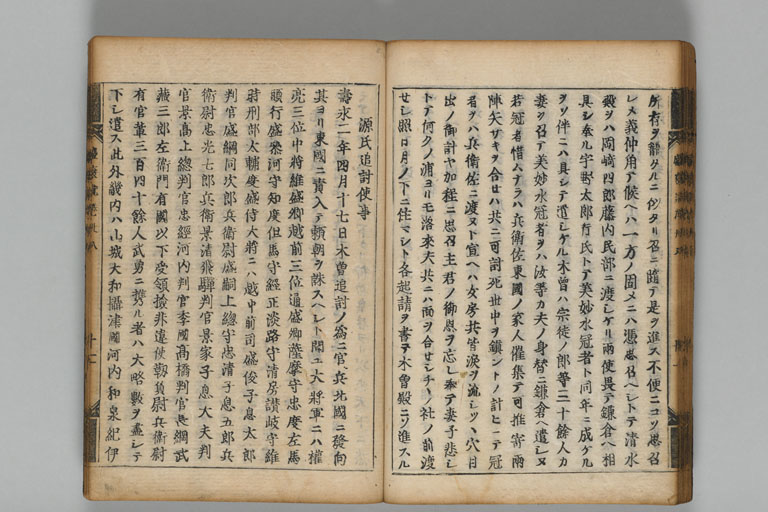 所存ヲ諍タルニ似タリ召ニ随テ是ヲ進ス不便ニコソ思召
レメ義仲角テ候ヘハ一方ノ固メニハ憑思召ヘシトテ清水
殿ヲハ岡崎四郎藤内民部ニ渡シケリ両使畏テ鎌倉ヘ相
具シ参ル宇野太郎行氏トテ美妙水冠者ト同年ニ成ケル
ヲソ伴ニハ具シテ遣シケル木曽ハ宗徒ノ郎等三十餘人カ
妻ヲ召テ美妙水冠者ヲハ汝等カ夫ノ身替ニ鎌倉ヘ遣シヌ
若冠者惜ムナラハ兵衛佐東國ノ家人催集テ可推寄両
陣矢サキヲ合セハ共ニ可討死世中ヲ鎮ントノ計ヒニテ冠
者ヲハ兵衛佐ニ渡ストヘハ女房共皆涙ヲ流シツヽ穴目
出ノ御計ヤ加程ニ思召主君ノ御恩ヲ忘レ奉テ妻子悲シ
トテ何クノ浦ヨリモ落来夫共ニハ面ヲ合セシチノ社ノ前渡
セシ照日月ノ下ニ住ヘシト各起請ヲ書テ木曽殿ニソ進スル
源氏追討使事
壽永二年四月十七日木曽追討ノ為ニ官兵北國ニ發向
其ヨリ東國ニ責入テ頼朝ヲ誅スヘシト聞ユ大将軍ニハ權
亮三位中将維盛卿越前三位通盛卿薩摩守忠度左馬
頭行盛参河守知度但馬守經正淡路守清房讃岐守維
時刑部太輔度盛侍大将ニハ越中前司盛俊子息太郎
判官盛綱同次郎兵衛尉盛嗣上總守忠清子息五郎兵
衛尉忠光七郎兵衛景清飛騨判官景家子息大夫判
官景高上總判官忠經河内判官季國高橋判官長綱武
藏三郎左衛門有國以下受領撿非違使靱負尉兵衛尉
有官輩三百四十餘人武勇ニ携ル者ハ大略数ヲ盡シテ
下シ遣ス此外畿内ハ山城大和攝津國河内和泉紀伊